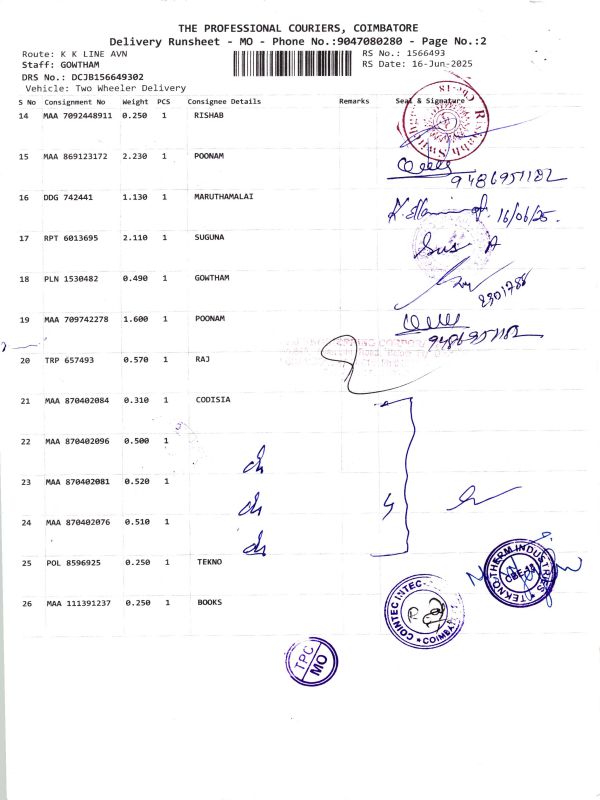 THE PROFESSIONAL COURIERS, COIMBATORE
Delivery Runsheet - MO - Phone No.:9047080280 - Page No.:2
Route: K K LINE AVN RS No.: 1566493
Staff: GOWTHAM RS Date: 16-Jun-2025
DRS No.: DCJB156649302
Vehicle: Two Wheeler Delivery
S No Consignment No Weight PCS Consignee Details Remarks Seal & Signature
14 MAA 7092448911 0.250 1 RISHAB
15 MAA 869123172 2.230 1 POONAM
9486951182
16 DDG 742441 1.130 1 MARUTHAMALAI
16/06/25.
17 RPT 6013695 2.110 1 SUGUNA
18 PLN 1530482 0.490 1 GOWTHAM
19 MAA 709742278 1.600 1 POONAM
9486951182
20 TRP 657493 0.570 1 RAJ
21 MAA 870402084 0.310 1 CODISIA
22 MAA 870402096 0.500 1
23 MAA 870402081 0.520 1
24 MAA 870402076 0.510 1
25 POL 8596925 0.250 1 TEKNO
TEKNO THERM INDUSTRIES
26 MAA 111391237 0.250 1 BOOKS
COINTEC INTEC
TPC
MO